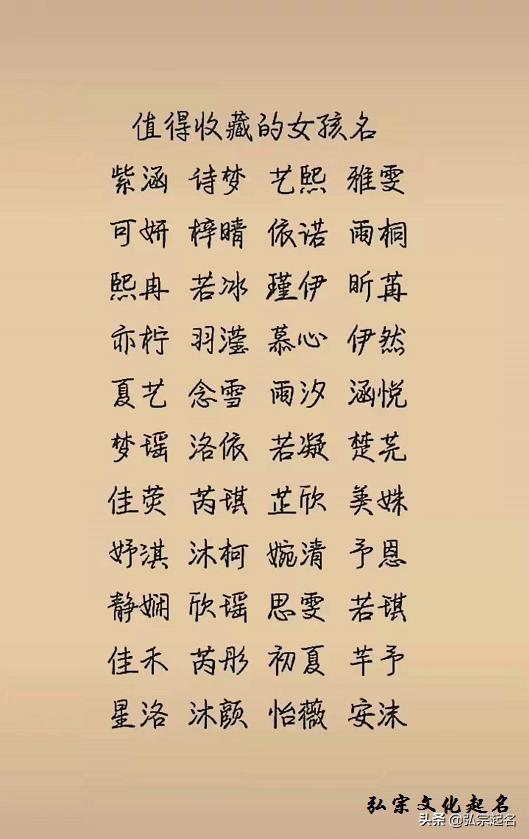 值得收藏的女孩名
紫涵 诗梦 艺熙 雅雯
可妍 梓晴 依诺 雨桐
熙冉 若冰 瑾伊 昕苒
亦柠 羽滢 慕心 伊然
夏艺 念雪 雨汐 涵悦
梦瑶 洛依 若凝 楚芫
佳荧 芮琪 芷欣 美姝
妤淇 沐柯 婉清 予恩
静娴 欣瑶 思雯 若琪
佳禾 芮彤 初夏 芊予
星洛 沐颜 怡薇 安沫
弘宗文化起名
头条 @弘宗起名